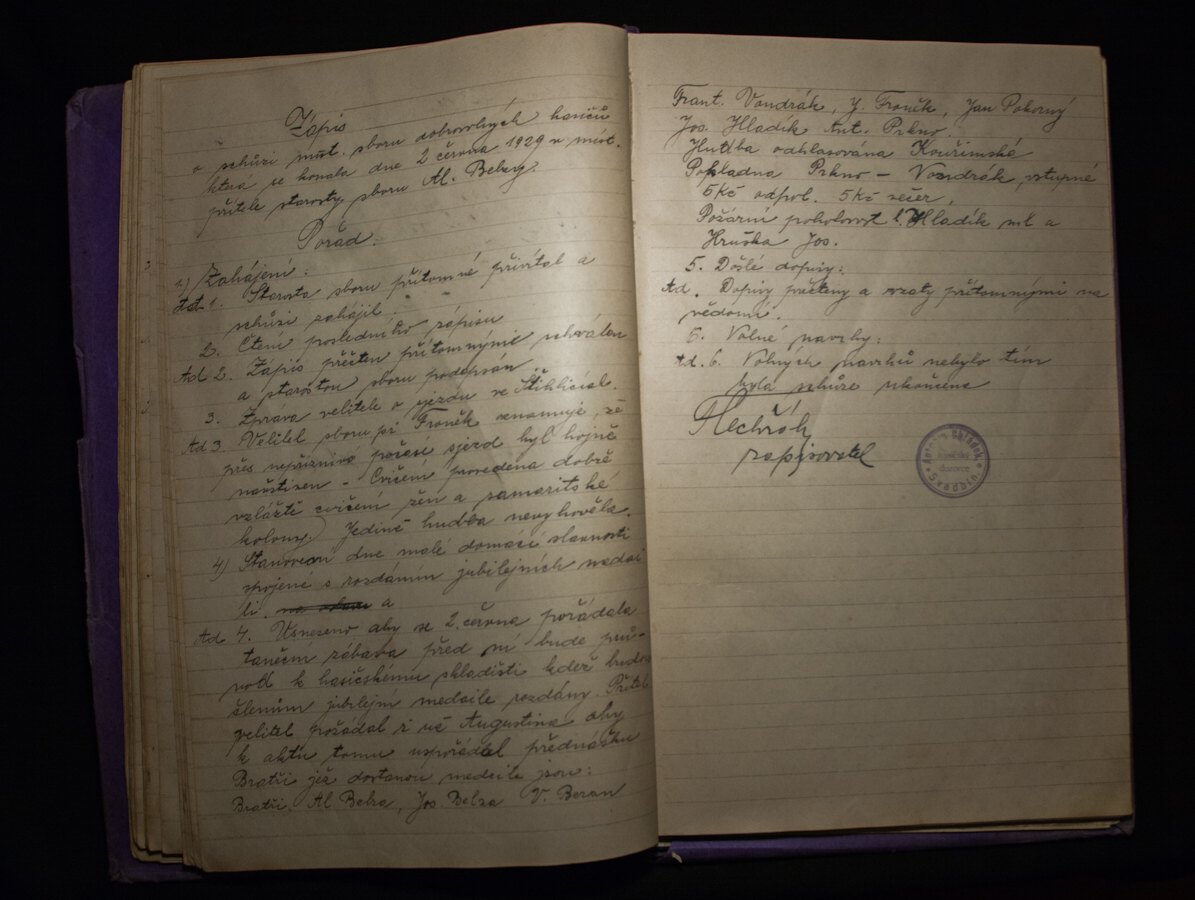 Zápis
o schůzi míst. sboru dobrovolných hasičů
ktera se konala dne 2 června 1929 v míst.
přítele starosty sboru Al. Belzy.
Pořad:
1.) Zahájení:
Ad 1. Starosta sboru přítomné přivítal a
schůzi zahájil.
2. Čtení posledního zápisu
Ad 2. Zápis přečten přítomnými schválen
a starostou sboru podepsán
3. Zpráva velitele o sjezdu ve
Ad 3 Velitel sboru př Froněk oznamuje, že
přes nepříznivé počasí sjezd byl hojně
navštíven - Cvičení provedena dobře
vzláště cvičení žen a samaritské
kolony. Jedině hudba nevyhověla.
4) Stanovení dne malé domací slavnosti
spojené s rozdáním jubilejních medai
lí. a
Ad 4. Usneseno aby se 2. června pořádala
taneční zábava před ní bude prů-
vod k hasičskému skladišti kdež budou
členům jubilejní medaile rozdány. Přítel
velitel požádal ř uč Augustina aby
k aktu tomu uspořádal přednášku
Bratři jež dostanou medaile jsou:
Bratři. Al Belza, Jos. Belza V. Beran
Frant. Vondrák, J. Froněk, Jan Pokorný
Jos. Hladík Ant. Prkno.
Hudba odhlasována Kouřimská
Pokladna Prkno - Vondrák, vstupné
5 Kč odpol. 5 Kč večer.
Požární pohotovost Hladík ml a
Hruška Jos.
5. Došlé dopisy:
Ad. Dopisy přečteny a vzaty přítomnými na
vědomí.
6. Volné navrhy:
Ad. 6. Volných navrhů nebylo tím
byla schůze ukončena
zapisovatel